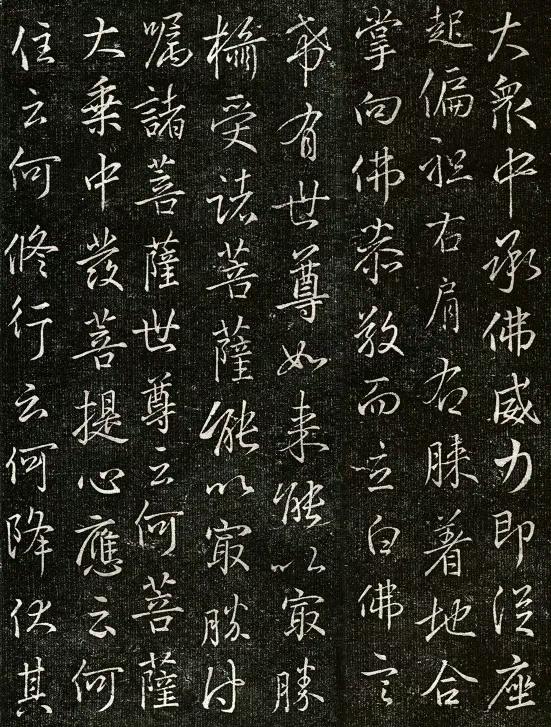 大衆中承佛威力即從座
起偏袒右肩右膝着地合
掌向佛恭敬而立白佛言
希有世尊如来能以寂勝
攝受諸菩薩能以寂勝付
嘱諸菩薩世尊云何菩薩
大乗中發菩提心應云何
住云何修行云何降伏其